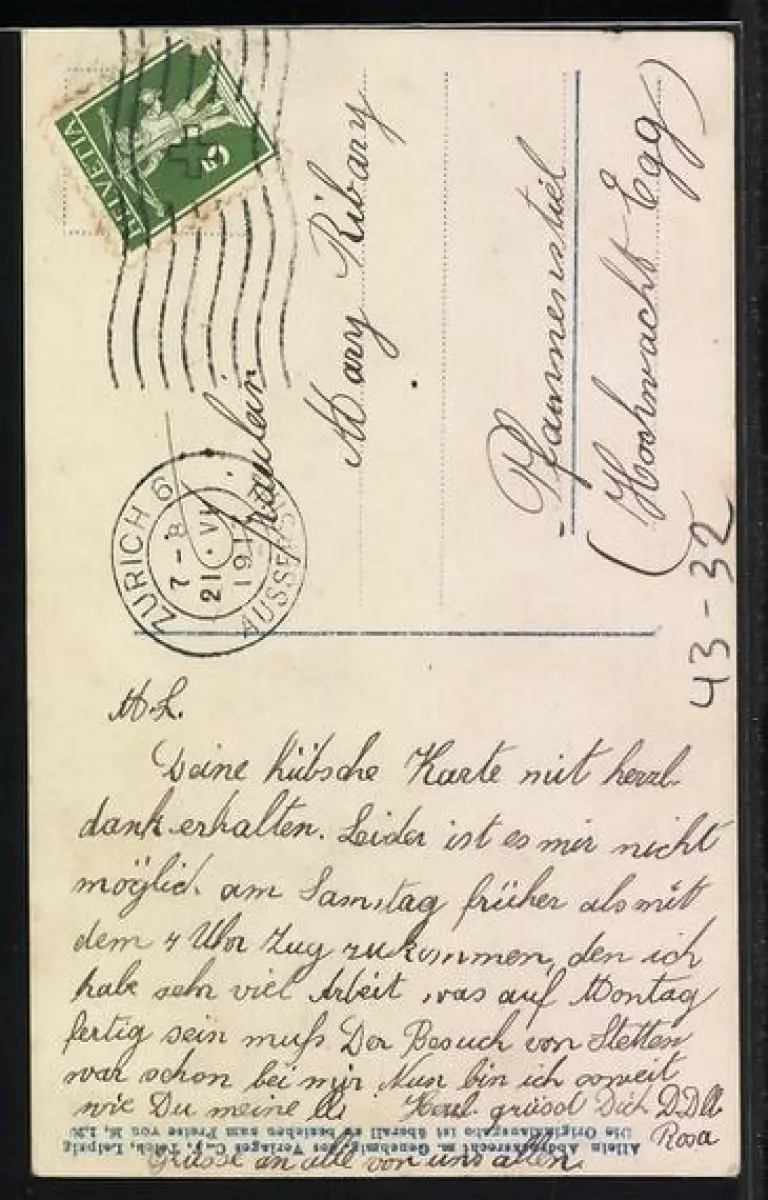 HELVETIA
5
ZÜRICH 6
7-8
21.VI.
191
AUSSERSIHL
Fräulein
Mary Ribary
Pfannenstiel
(Hochwacht Egg)
43-32
M. L.
Deine hübsche Karte mit herzl.
dank erhalten. Leider ist es mir nicht
möglich am Samstag früher als mit
dem 4 Uhr Zug zu kommen, den ich
habe sehr viel Arbeit was auf Montag
fertig sein muß Der Besuch von Stetten
war schon bei mir Nun bin ich soweit
wie Du meine l.
grüsst Dich
Rosa
Grüsse an alle von uns allen.
Allein Abdrucksrecht m. Genehmig. des Verlages C. F. Teich, Leipzig
Die Originalausgabe ist überall zu beziehen zum Preise von M. 1.20